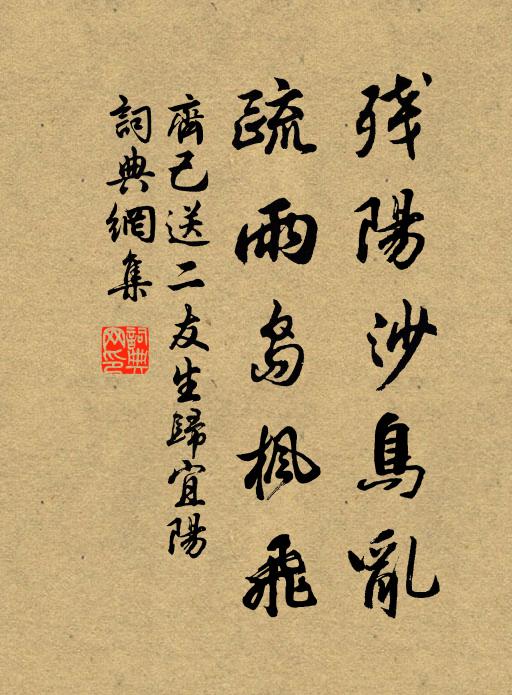 残陽沙鳥亂
疏雨島楓飛
齊己送二友生歸宜陽
詞典網集
詞典网印